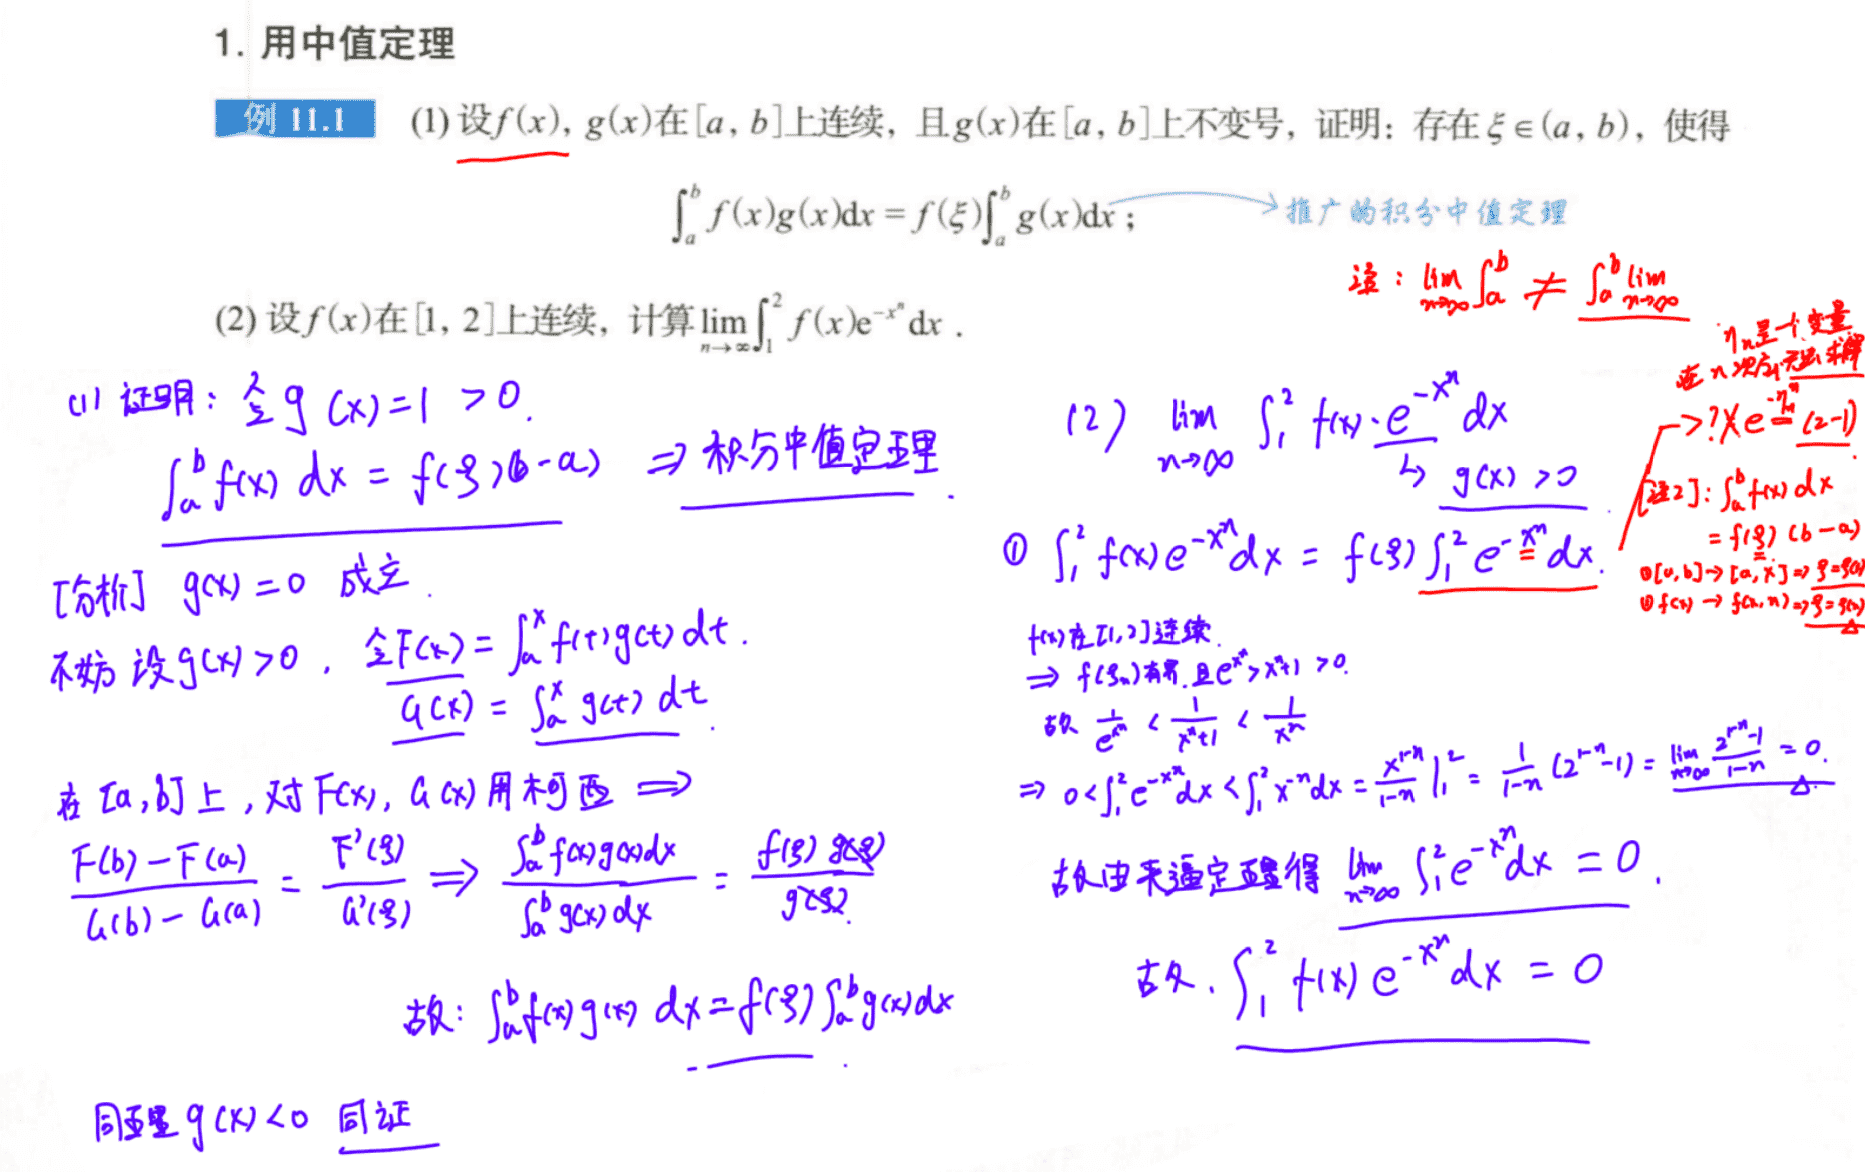 1. 用中值定理
例 11.1 (1) 设f(x), g(x)在[a, b]上连续, 且g(x)在[a, b]上不变号, 证明: 存在ξ∈(a, b), 使得
∫_a^b f(x)g(x)dx = f(ξ)∫_a^b g(x)dx ;
推广的积分中值定理
注: lim_{n→∞} ∫_a^b ≠ ∫_a^b lim_{n→∞}
(2) 设f(x)在[1, 2]上连续, 计算 lim_{n→∞} ∫_1^2 f(x)e^{-x^n} dx .
(1) 证明: 令 g(x)=1 >0.
∫_a^b f(x) dx = f(ξ)(b-a) ⇒ 积分中值定理.
[分析] g(x)=0 成立.
不妨设g(x)>0, 令F(x) = ∫_a^x f(t)g(t)dt.
G(x) = ∫_a^x g(t) dt.
在[a,b]上, 对F(x), G(x)用柯西 ⇒
(F(b)-F(a))/(G(b)-G(a)) = F'(ξ)/G'(ξ) ⇒ ∫_a^b f(x)g(x)dx / ∫_a^b g(x)dx = f(ξ)g(ξ)/g(ξ).
故: ∫_a^b f(x)g(x) dx = f(ξ)∫_a^b g(x)dx.
同理g(x)<0 同证
(2) lim_{n→∞} ∫_1^2 f(x)·e^{-x^n} dx
↳ g(x) >0.
① ∫_1^2 f(x)e^{-x^n}dx = f(ξ)∫_1^2 e^{-x^n}dx.
ηn是一个变量
在n次方, 无法求解
→ ?X e^{-η_n^n}(2-1).
[注2]: ∫_a^b f(x)dx
= f(ξ)(b-a)
①[a,b]→[a,x]⇒ξ=ξ(x)
②f(x)→f(x,n)⇒ξ=ξ(n)
f(x)在[1,2]连续.
⇒ f(ξn)有界. 且e^{x^n}>x^n+1 >0.
故 1/e^{x^n} < 1/(x^n+1) < 1/x^n
⇒ 0<∫_1^2 e^{-x^n}dx<∫_1^2 x^{-n}dx = x^{1-n}/(1-n)|_1^2 = 1/(1-n) (2^{1-n}-1) = lim_{n→∞} (2^{1-n}-1)/(1-n) = 0.
故由夹逼定理得 lim_{n→∞} ∫_1^2 e^{-x^n}dx = 0.
故. ∫_1^2 f(x)e^{-x^n}dx = 0